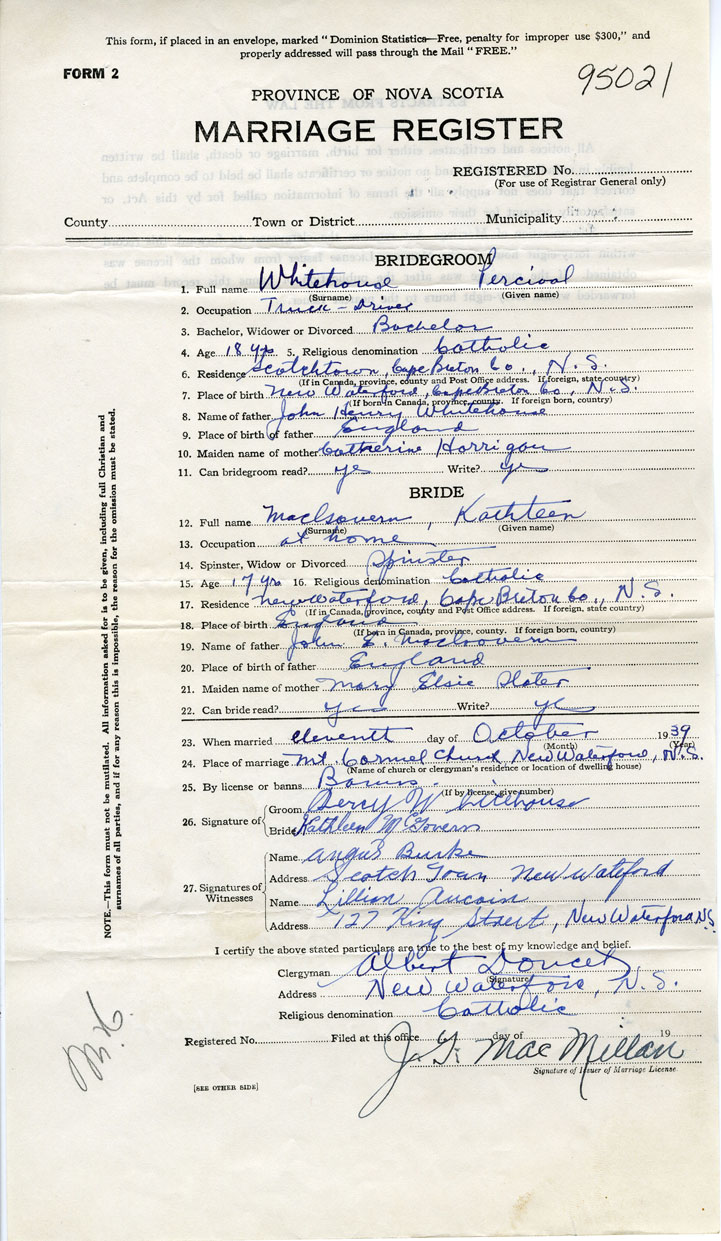 This form, if placed in an envelope, marked "Dominion Statistics—Free, penalty for improper use $300," and
properly addressed will pass through the Mail "FREE."
FORM 2
95021
PROVINCE OF NOVA SCOTIA
MARRIAGE REGISTER
REGISTERED No.
(For use of Registrar General only)
County Town or District Municipality
BRIDEGROOM
1. Full name Whitehouse Percival
(Surname) (Given name)
2. Occupation Truck-Driver
3. Bachelor, Widower or Divorced Bachelor
4. Age 18 yrs 5. Religious denomination Catholic
6. Residence Scotchtown, Cape Breton Co., N.S.
(If in Canada, province, county and Post Office address. If foreign, state country)
7. Place of birth New Waterford, Cape Breton Co., N.S.
(If born in Canada, province, county. If foreign born, country)
8. Name of father John Henry Whitehouse
9. Place of birth of father England
10. Maiden name of mother Catherine Horrigan
11. Can bridegroom read? yes Write? yes
BRIDE
12. Full name MacGovern, Kathleen
(Surname) (Given name)
13. Occupation at home
14. Spinster, Widow or Divorced Spinster
15. Age 17 yrs 16. Religious denomination Catholic
17. Residence New Waterford, Cape Breton Co., N.S.
(If in Canada, province, county and Post Office address. If foreign, state country)
18. Place of birth England
(If born in Canada, province, county. If foreign born, country)
19. Name of father John E. MacGovern
20. Place of birth of father England
21. Maiden name of mother Mary Elsie Slater
22. Can bride read? yes Write? yes
23. When married eleventh day of October 1939
(Month) (Year)
24. Place of marriage Mt. Carmel Church New Waterford, N.S.
(Name of church or clergyman's residence or location of dwelling house)
25. By license or banns Banns
(If by license, give number)
26. Signature of
Groom Percy Whitehouse
Bride Kathleen McGovern
27. Signatures of Witnesses
Name Angus Burke
Address Scotch Town New Wateford
Name Lillian Aucoin
Address 127 King Street, New Waterford N.S.
I certify the above stated particulars are true to the best of my knowledge and belief.
Clergyman Albert Doucet
(Signature)
Address New Waterford, N.S.
Religious denomination Catholic
Registered No. Filed at this office day of 19
J. G. MacMillan
Signature of Issuer of Marriage License
[SEE OTHER SIDE]
NOTE.—This form must not be mutilated. All information asked for is to be given, including full Christian and
surnames of all parties, and if for any reason this is impossible, the reason for the omission must be stated.